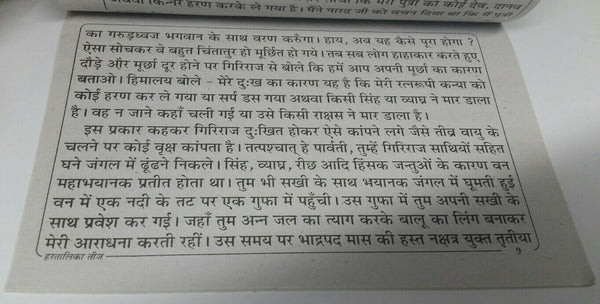 अथवा किन्नर हरण करके ले गया है। मैंने नारद जी को वचन दिया था कि मैं पुत्री
का गरुड़ध्वज भगवान के साथ वरण करूँगा। हाय, अब यह कैसे पूरा होगा ?
ऐसा सोचकर वे बहुत चिंतातुर हो मूर्छित हो गये। तब सब लोग हाहाकार करते हुए
दौड़े और मूर्छा दूर होने पर गिरिराज से बोले कि हमें आप अपनी मूर्छा का कारण
बताओ। हिमालय बोले - मेरे दुःख का कारण यह है कि मेरी रत्नरूपी कन्या को
कोई हरण कर ले गया या सर्प डस गया अथवा किसी सिंह या व्याघ्र ने मार डाला
है। वह न जाने कहाँ चली गई या उसे किसी राक्षस ने मार डाला है।
इस प्रकार कहकर गिरिराज दुःखित होकर ऐसे कांपने लगे जैसे तीव्र वायु के
चलने पर कोई वृक्ष कांपता है। तत्पश्चात् हे पार्वती, तुम्हें गिरिराज साथियों सहित
घने जंगल में ढूंढने निकले। सिंह, व्याघ्र, रीछ आदि हिंसक जन्तुओं के कारण वन
महाभयानक प्रतीत होता था। तुम भी सखी के साथ भयानक जंगल में घूमती हुई
वन में एक नदी के तट पर एक गुफा में पहुँची। उस गुफा में तुम अपनी सखी के
साथ प्रवेश कर गई। जहाँ तुम अन्न जल का त्याग करके बालू का लिंग बनाकर
मेरी आराधना करती रहीं। उस समय पर भाद्रपद मास की हस्त नक्षत्र युक्त तृतीया
हरतालिका तीज
९